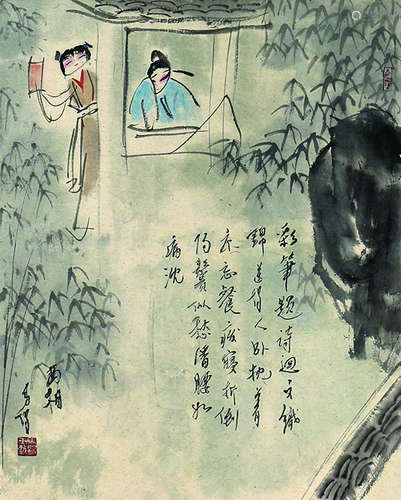 彩筆題詩迴文織
錦送得人卧枕着
床忘餐廢寢折倒
得鬢似愁潘腰如
病沈
西廂
馬得